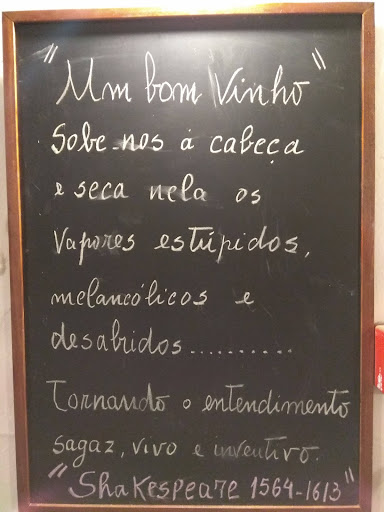 "Um bom Vinho"
Sobe-nos á cabeça
e seca nela os
Vapores estúpidos,
melancólicos e
desabridos..........
Tornando o entendimento
sagaz, vivo e inventivo.
"Shakespeare 1564-1613"